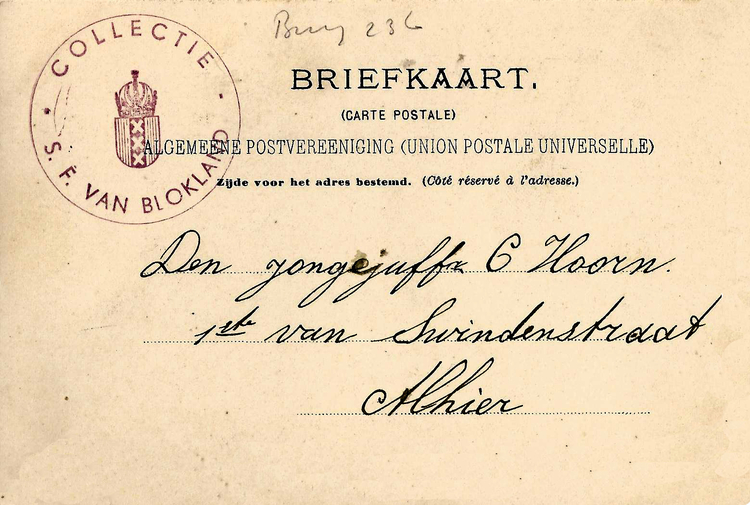 COLLECTIE
S. F. VAN BLOKLAND
236
BRIEFKAART.
(CARTE POSTALE)
ALGEMEENE POSTVEREENIGING (UNION POSTALE UNIVERSELLE)
Zijde voor het adres bestemd. (Côté réservé à l'adresse.)
Den jongejuffr C Hoorn.
1ste van Swindenstraat
Alhier